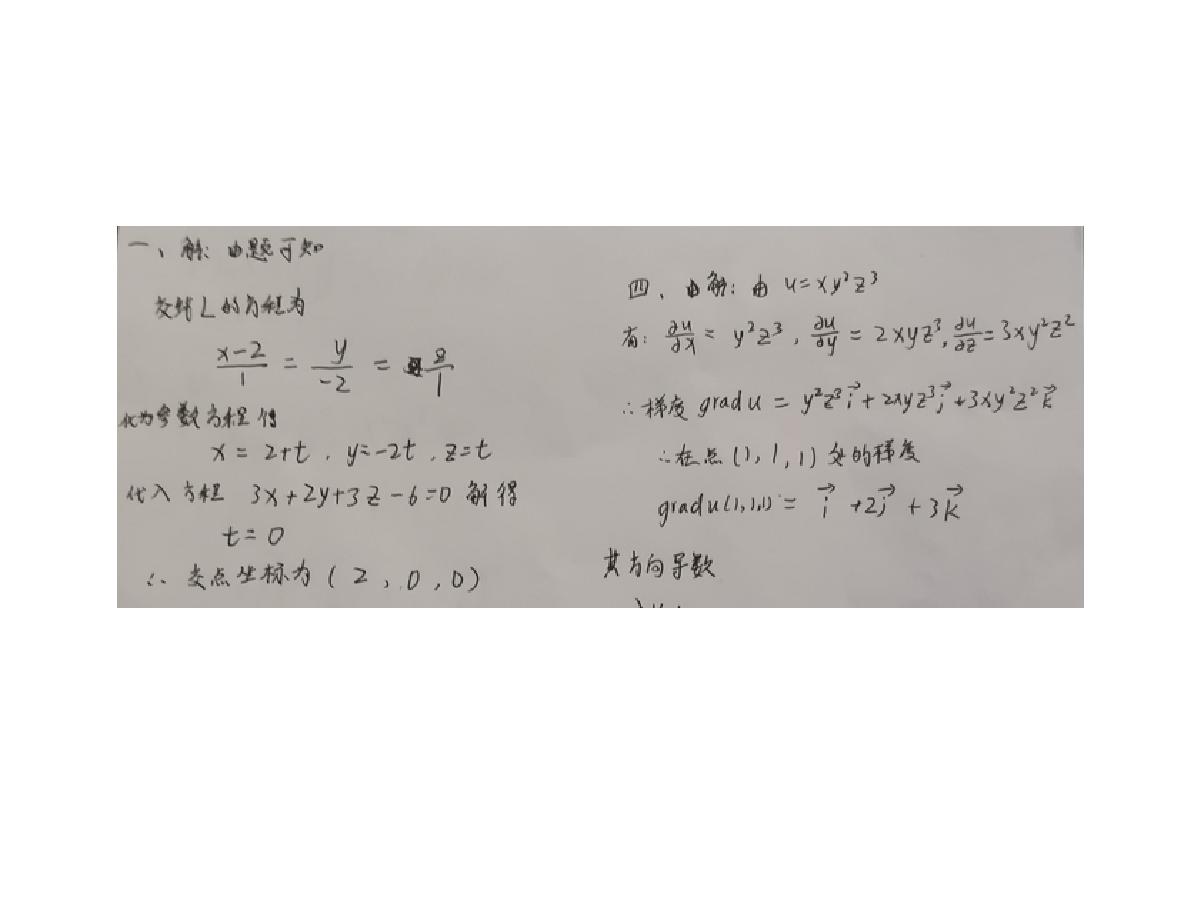 一、解：由题可知
交线L的方程为
x-2/1 = y/-2 = z/1
化为参数方程得
x = 2+t , y=-2t , z=t
代入方程 3x+2y+3z-6=0 解得
t=0
∴ 交点坐标为 (2,0,0)
四、解：由 u=xy²z³
有：∂u/∂x = y²z³ , ∂u/∂y = 2xyz³, ∂u/∂z = 3xy²z²
∴梯度 grad u = y²z³i⃗ + 2xyz³j⃗ + 3xy²z²k⃗
∴在点(1,1,1)处的梯度
gradu(1,1,1) = i⃗ +2j⃗ +3k⃗
其方向导数